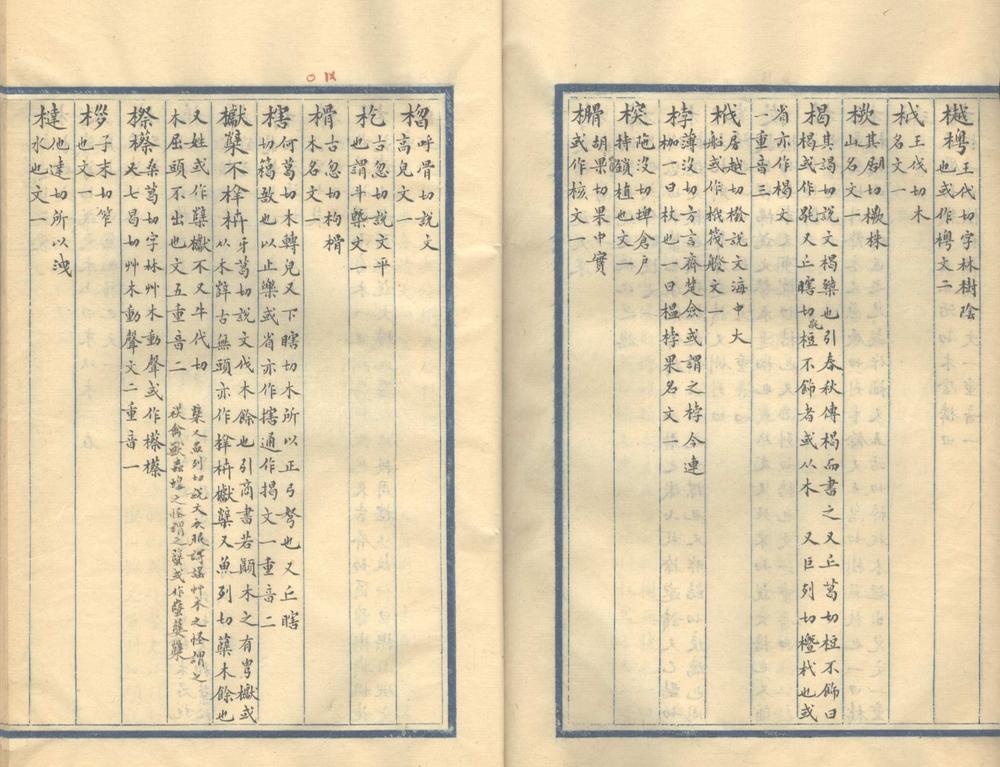 樾樗王伐切字林樹陰
也或作樗文二
栻王伐切木
名文一
橛其月切橛株
山名文一
楬其謁切說文楬桀也引春秋傳楬而書之又丘葛切椌不飾曰
楬或作毼又丘瞎切椌不飾者或從木又巨列切櫭杙也或
省亦作楬文
一重音三
橃房越切橃說文海中大
船或作栰筏艘文一
桲薄沒切方言齊楚僉或謂之桲今連
枷一曰杖也一曰榲桲果名文一
揬陁沒切埤倉戶
持鎖植也文一
榾胡果切果中實
或作核文一
榴呼骨切說文
高皃文一
杚古忽切說文平
也謂斗槩文一
榾古忽切枸榾
木名文一
㮫何葛切木轉皃又下瞎切木所以正弓弩也又丘瞎
切篙敔也以止樂或省亦作㮫通作揭文一重音二
巘櫱不梓枿牙葛切說文伐木餘也引商書若顛木之有㽕巘或
从木辥古無頭亦作梓枿巘櫱又魚列切櫱木餘也
又姓或作櫱巘不又牛代切
木屈頭不出也文五重音二
櫱又魚列切說文衣服謌謠艸木之怪謂之
禖禽獸蟲蝗之怪謂之櫱或作蠥櫱櫱
檫蔡桑葛切字林艸木動聲或作檫檫
又七曷切艸木動聲文二重音一
桚子末切笮
也文一
㯓他達切所以洩
水也文一